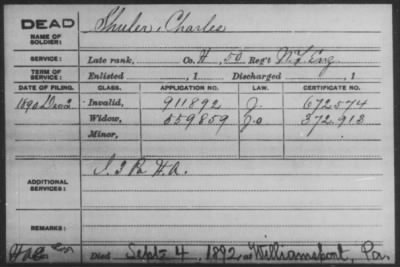 DEAD
NAME OF SOLDIER: Shuler, Charles
SERVICE: Late rank, Co. H, 50 Reg't N.Y. Eng.
TERM OF SERVICE: Enlisted , 1 Discharged , 1
DATE OF FILING. CLASS. APPLICATION NO. LAW. CERTIFICATE NO.
1890 Invalid, 911892 J. 672574
Widow, 559859 J.o 372.913
Minor,
ADDITIONAL SERVICES: I. 3 H.A.
REMARKS:
Died Sept. 4, 1892, at Williamsport, Pa.